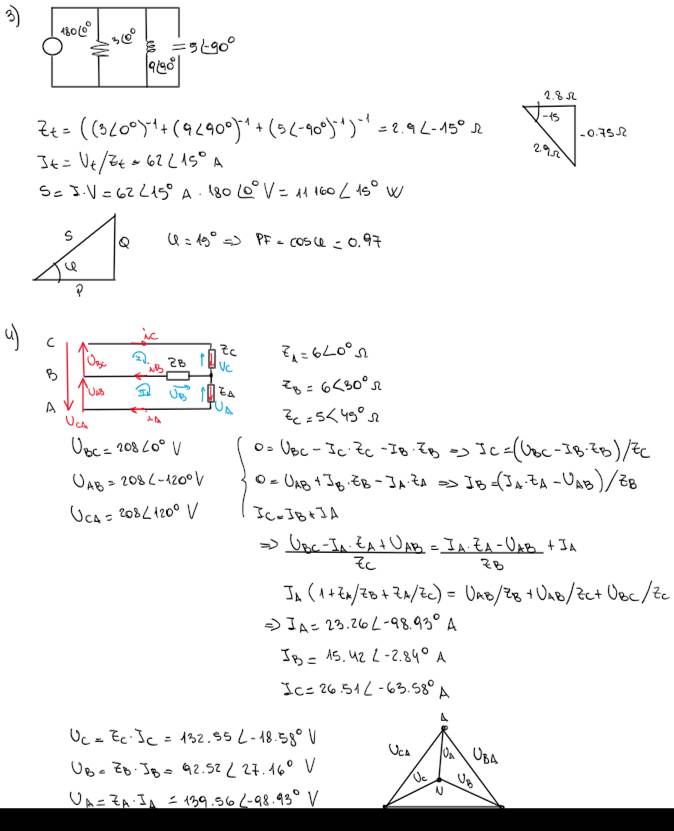 3)
180∠0°
3∠0°
9∠90°
5∠-90°
Zt = ((3∠0°)⁻¹ + (9∠90°)⁻¹ + (5∠-90°)⁻¹)⁻¹ = 2.9∠-15° Ω
2.8 Ω
-15
-0.75 Ω
2.9 Ω
It = Vt/Zt = 62∠15° A
S = I·V = 62∠15° A · 180∠0° V = 11160∠15° W
S
Q
φ
P
φ = 15° => PF = cosφ = 0.97
4)
C
iC
ZC
UBC
I2
iB
ZB
VC
B
UAB
I1
UB
ZA
A
iA
UA
UCA
ZA = 6∠0° Ω
ZB = 6∠30° Ω
ZC = 5∠45° Ω
UBC = 208∠0° V
UAB = 208∠-120° V
UCA = 208∠120° V
0 = UBC - IC·ZC - IB·ZB => IC = (UBC - IB·ZB)/ZC
0 = UAB + IB·ZB - IA·ZA => IB = (IA·ZA - UAB)/ZB
IC = IB + IA
=> (UBC - IA·ZA + UAB)/ZC = (IA·ZA - UAB)/ZB + IA
IA (1 + ZA/ZB + ZA/ZC) = UAB/ZB + UAB/ZC + UBC/ZC
=> IA = 23.26∠-98.93° A
IB = 15.42∠-2.84° A
IC = 26.51∠-63.58° A
UC = ZC·IC = 132.55∠-18.58° V
UB = ZB·IB = 92.52∠27.16° V
UA = ZA·IA = 139.56∠-98.93° V
A
UCA
UA
UBA
UC
UB
N